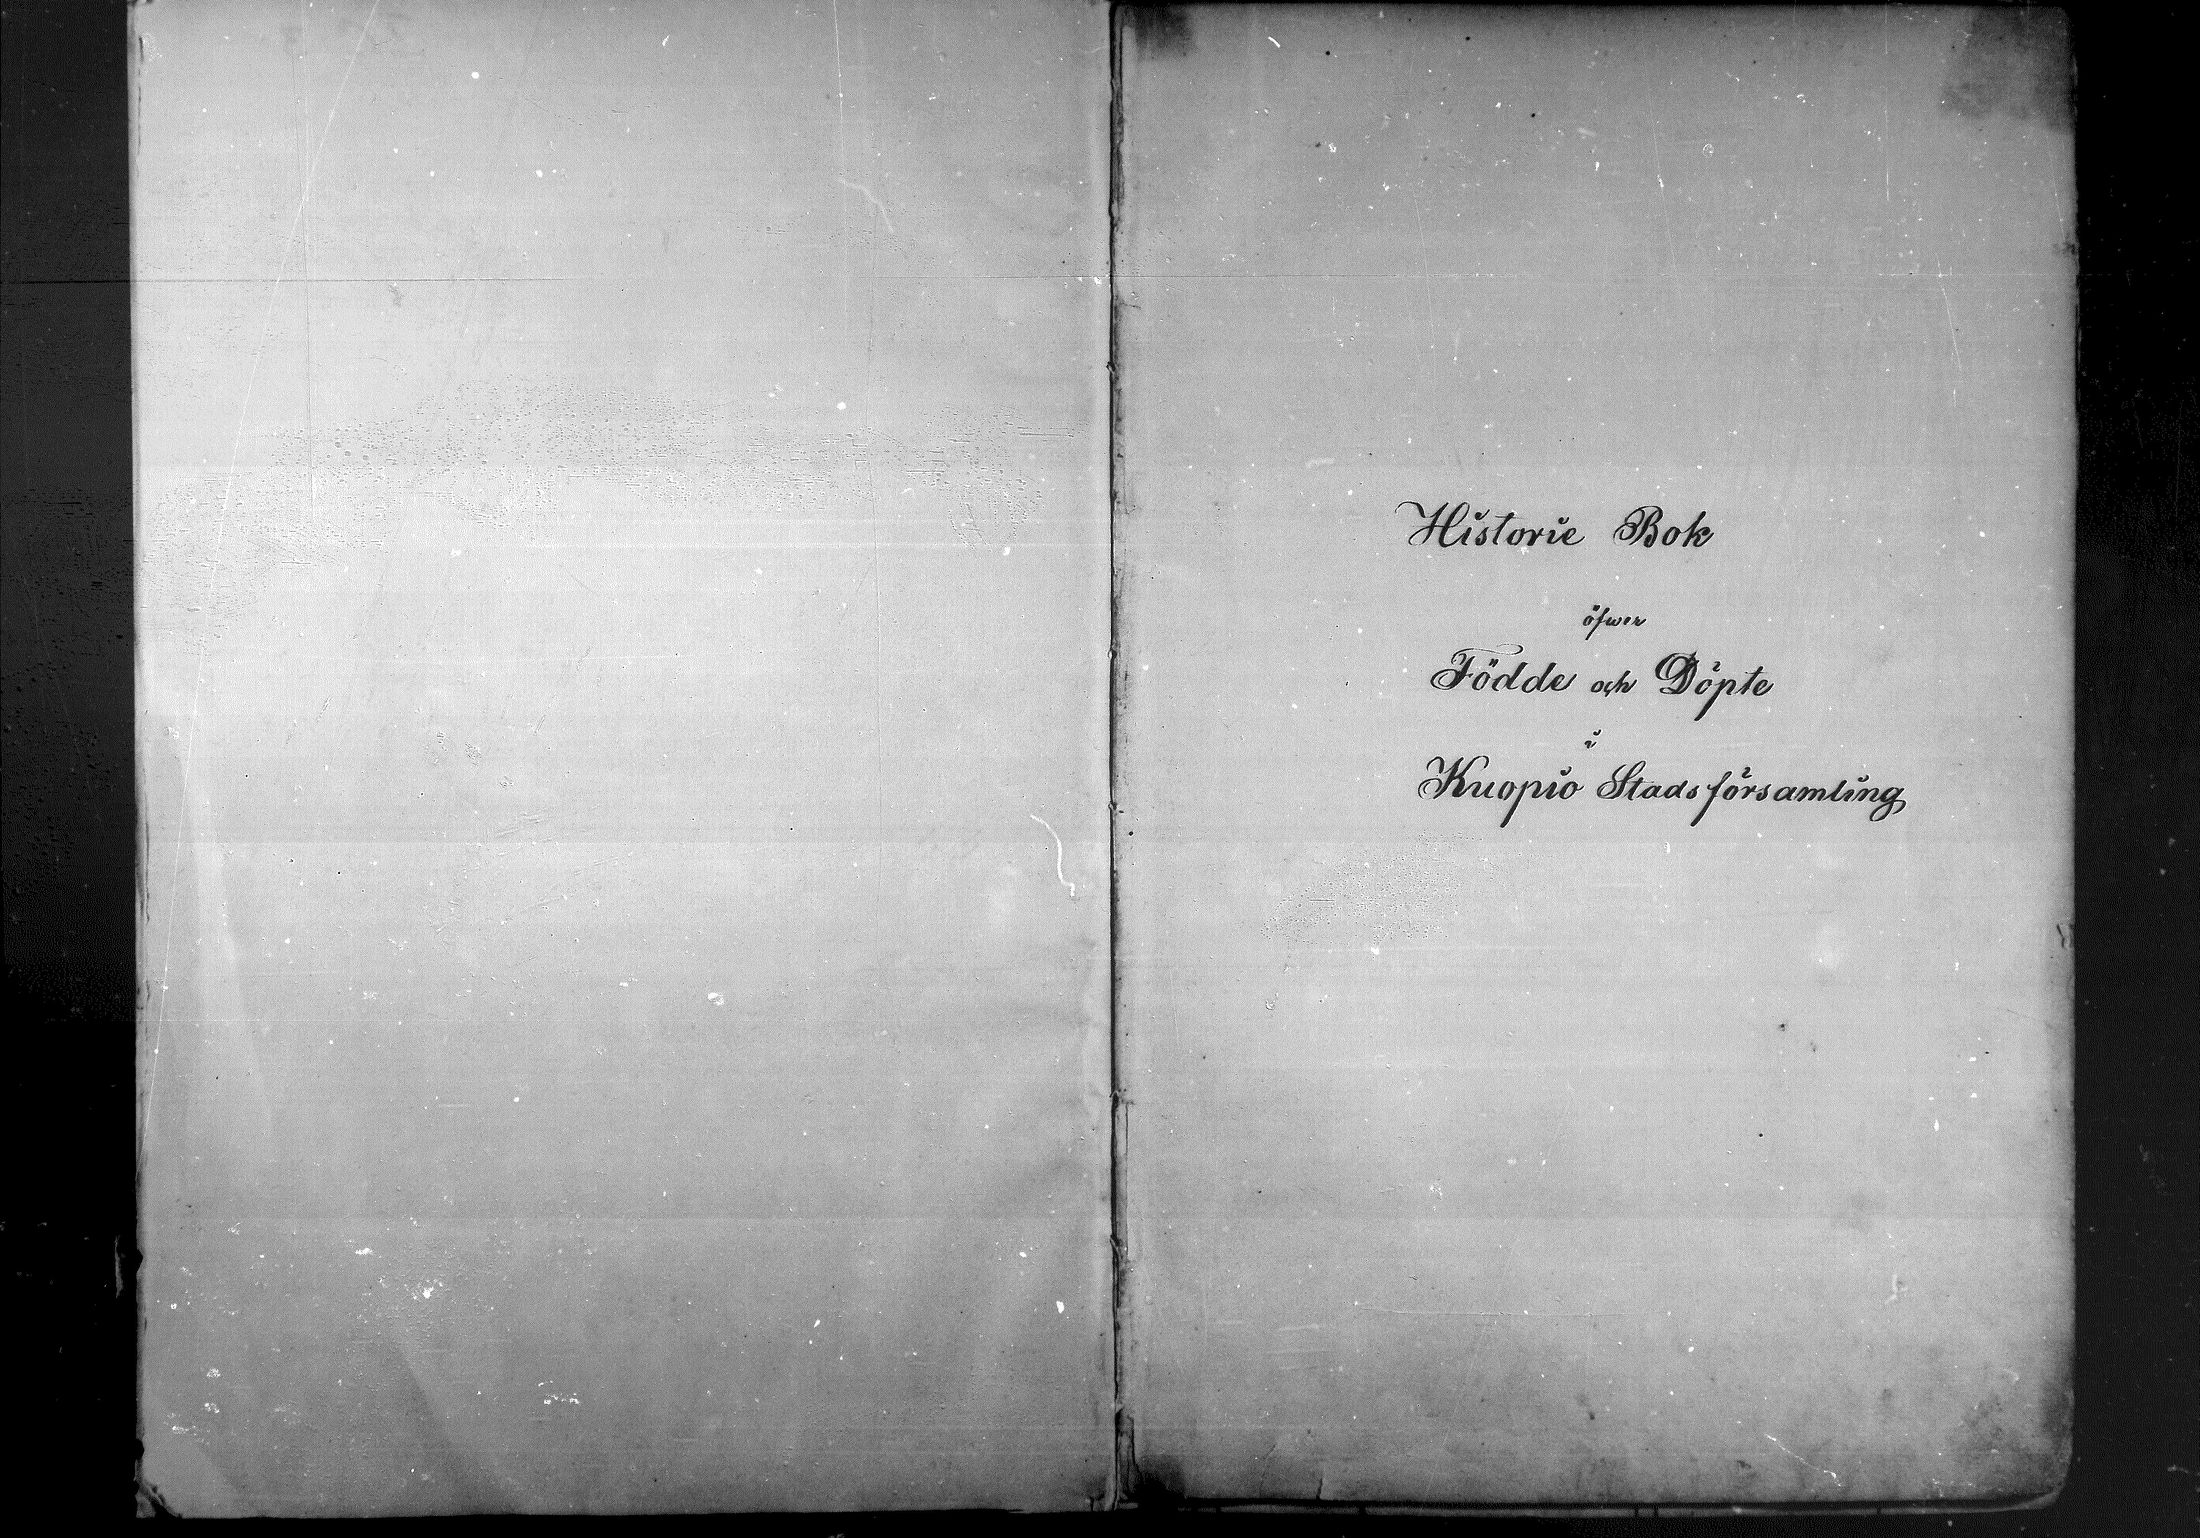 Historie Bok
öfwer
Födde och Döpte
i
Kuopio Stadsförsamling